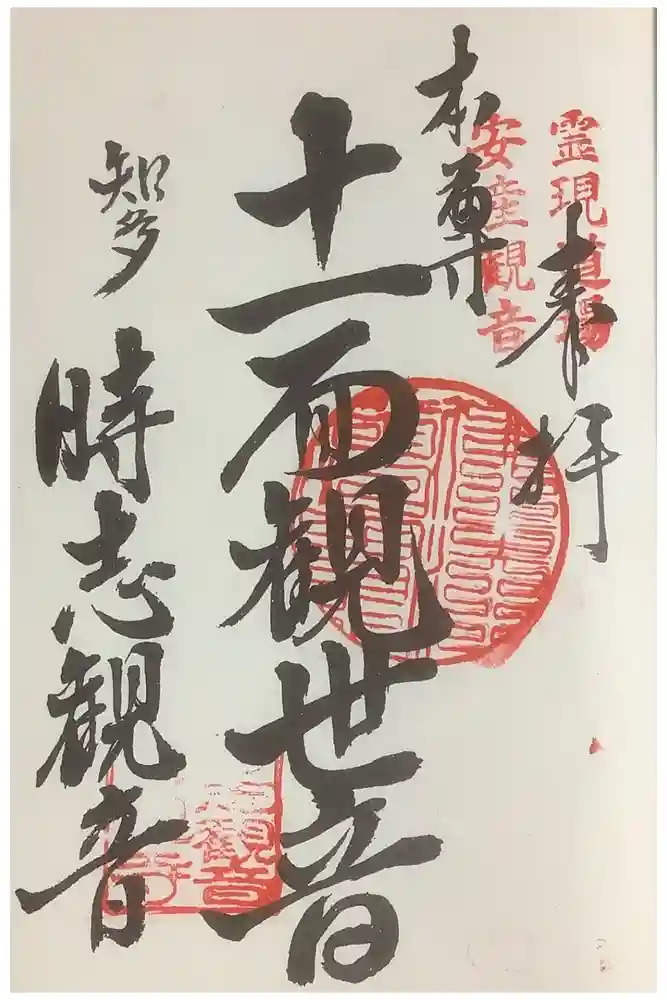 霊現道場
安産観音
奉拝
本尊
十一面観世音
智多
時志観音
観音